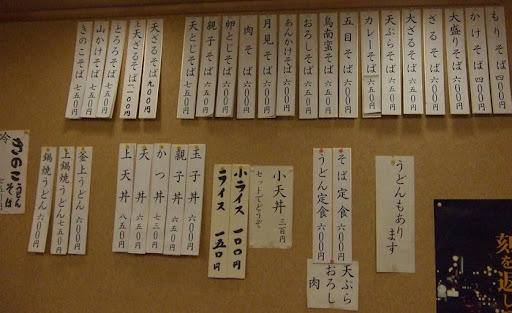 もりそば 四〇〇円
かけそば 四〇〇円
大盛りそば 六〇〇円
ざるそば 六〇〇円
大ざるそば 七五〇円
天ぷらそば 六五〇円
カレーそば 六五〇円
五目そば 六〇〇円
鳥南蛮そば 六五〇円
おろしそば 六五〇円
あんかけそば 六〇〇円
月見そば 六〇〇円
肉そば 六〇〇円
卵とじそば 六〇〇円
親子そば 六五〇円
天とじそば 七五〇円
天ざるそば 九〇〇円
上天ざるそば 一一〇〇円
とろろそば 七五〇円
山かけそば 七五〇円
きのこそば 七五〇円
うどんもあります
そば定食 六〇〇円
うどん定食 六〇〇円
天ぷら
おろし
肉
小天丼 三百円
セットでどうぞ
小ライス 一〇〇円
ライス 一五〇円
玉子丼 六〇〇円
親子丼 六五〇円
かつ丼 七三〇円
天丼 六五〇円
上天丼 八五〇円
釜上うどん 六〇〇円
上鍋焼うどん 七五〇円
鍋焼うどん 六〇〇円
冷 きのこ うどん そば
刻を返し